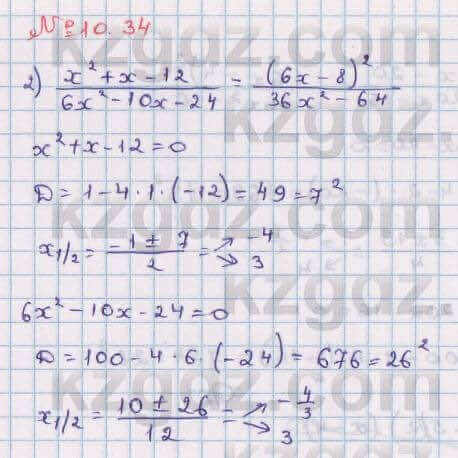 № 10. 34
2) (x² + x - 12)/(6x² - 10x - 24) = (6x - 8)²/(36x² - 64)
x² + x - 12 = 0
D = 1 - 4 · 1 · (-12) = 49 = 7²
x₁/₂ = (-1 ± 7)/2 = ↗ -4 ↘ 3
6x² - 10x - 24 = 0
D = 100 - 4 · 6 · (-24) = 676 = 26²
x₁/₂ = (10 ± 26)/12 = ↗ -4/3 ↘ 3
kzgdz.com